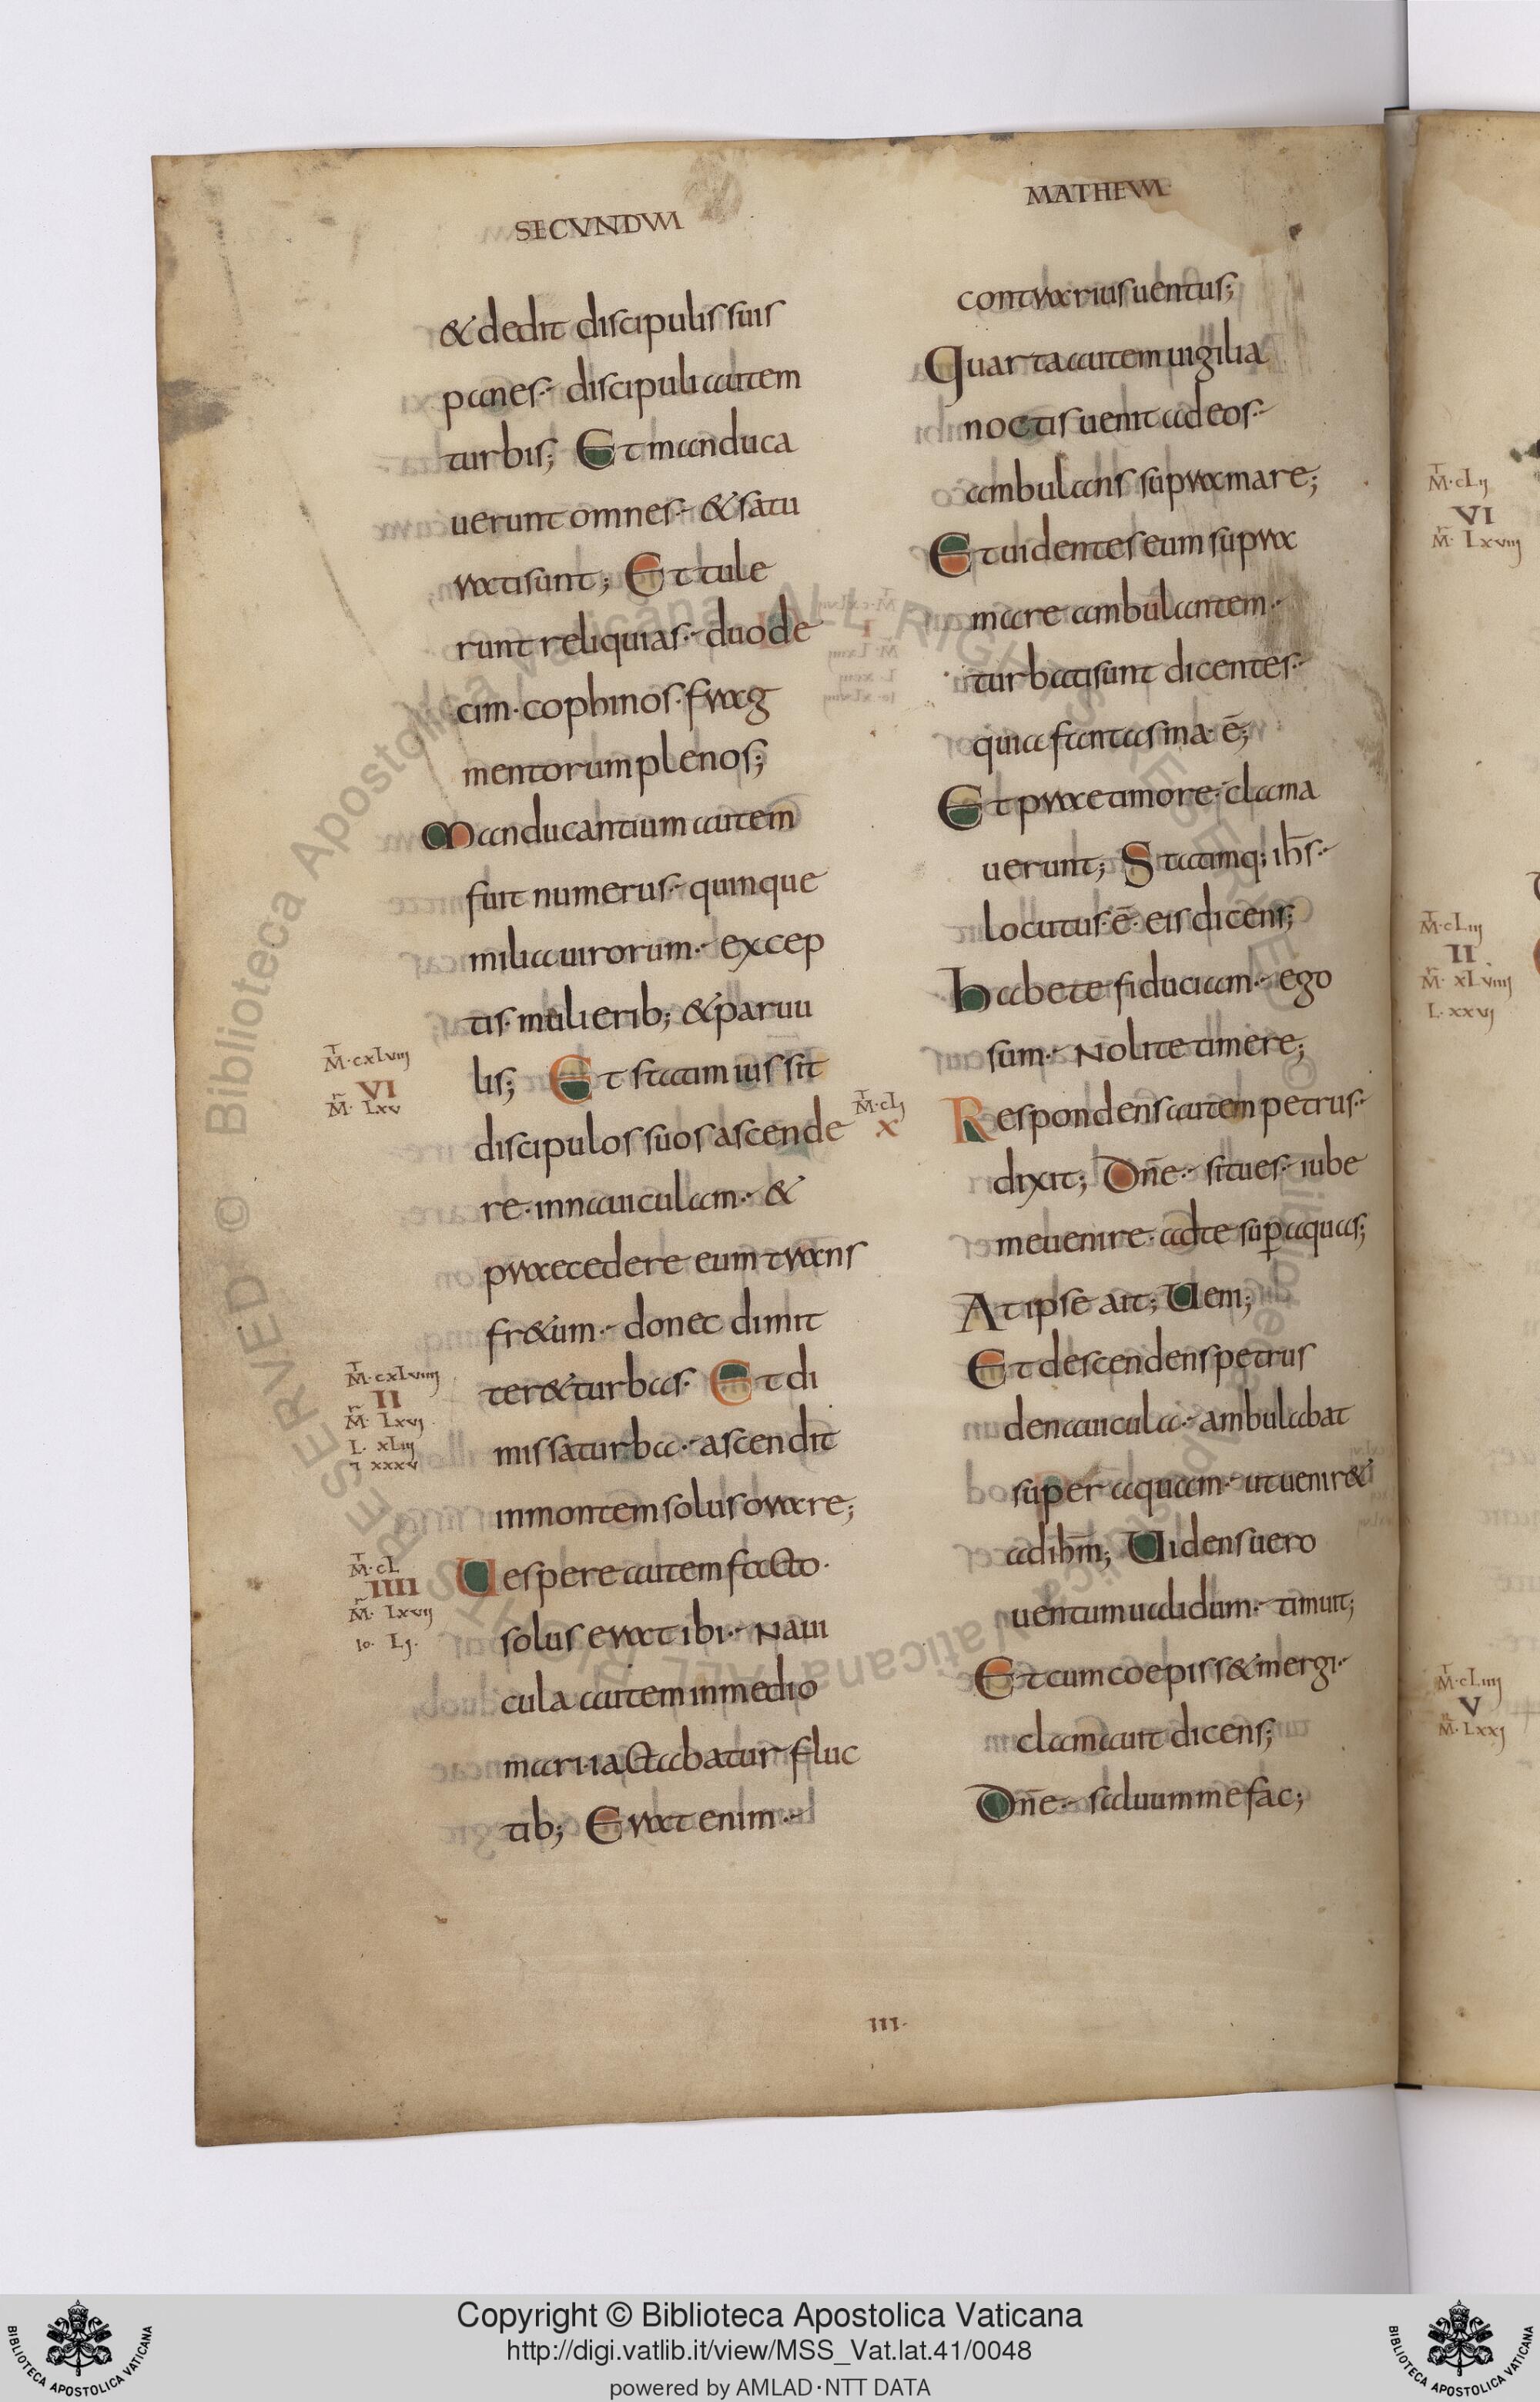 SECVNDVM
& dedit discipulis suis
panes. discipuli autem
turbis; Et manduca
uerunt omnes. & satu
rati sunt; Et tule
runt reliquias. duode
cim. cophinos. frag
mentorum plenos;
Manducantium autem
fuit numerus. quinque
milia uirorum. excep
tis. mulierib; & paruu
lis; Et statim iussit
discipulos suos ascende
re. in nauiculam. &
praecedere eum trans
fr&um. donec dimit
ter& turbas. Et di
missa turba. ascendit
in montem solus orare;
Uespere autem facto.
solus erat ibi. Naui
cula autem in medio
mari. iactabatur fluc
tib; Erat enim.
M·cxLviii
VI
M· Lxv
M·cxLviiii
II
M· Lxvj
L· xLiii
xxxv
M·cL
IIII
M· Lxvij
Io· Lj·
MATHEVM
contrarius uentus;
Quarta autem uigilia
noctis uenit ad eos.
ambulans supra mare;
Et uidentes eum supra
mare ambulantem.
turbati sunt dicentes.
quia fantasma. ē;
Et prae timore. clama
uerunt; Statimq; ihs̄.
locutus. ē. eis dicens;
Habete fiduciam. ego
sum. Nolite timere;
Respondens autem petrus.
dixit; Dn̄e. si tu es. iube
me uenire. ad te sup̱ aquas;
At ipse ait; Ueni;
Et descendens petrus
de nauicula. ambulabat
super aquam. ut uenir&
ad ihm̄; Uidens uero
uentum ualidum. timuit;
Et cum coepiss& mergi.
clamauit dicens;
Dn̄e. saluum me fac;
M·cLj
X
III·
M·cLij
VI
M· Lxviii
M·cLiii
II
M· xLviiii
L· xxvj
M·cLiiii
V
M· Lxxj
Copyright © Biblioteca Apostolica Vaticana
http://digi.vatlib.it/view/MSS_Vat.lat.41/0048
powered by AMLAD·NTT DATA
BIBLIOTECA APOSTOLICA VATICANA
BIBLIOTECA APOSTOLICA VATICANA